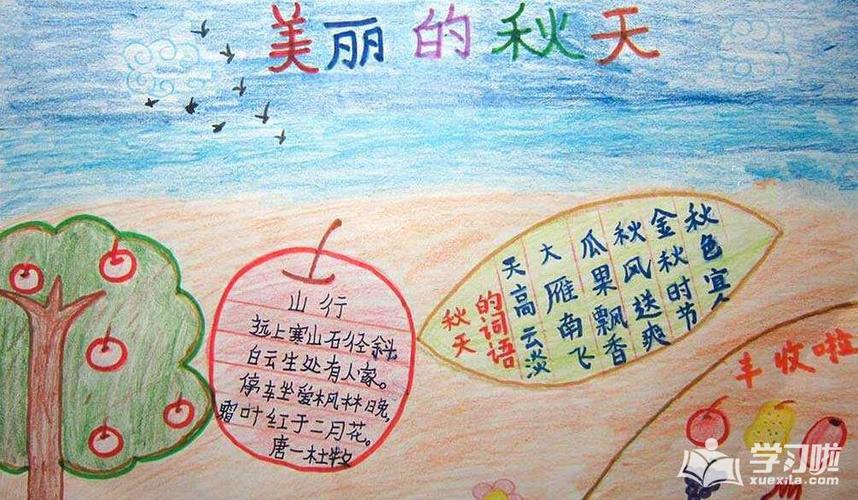 美丽的秋天
山行
远上寒山石径斜
白云生处有人家。
停车坐爱枫林晚，
霜叶红于二月花。
唐一杜牧
秋天
的词语
天高云淡
大雁南飞
瓜果飘香
秋风送爽
金秋时节
秋色宜人
丰收啦
学习啦
xuexila.com